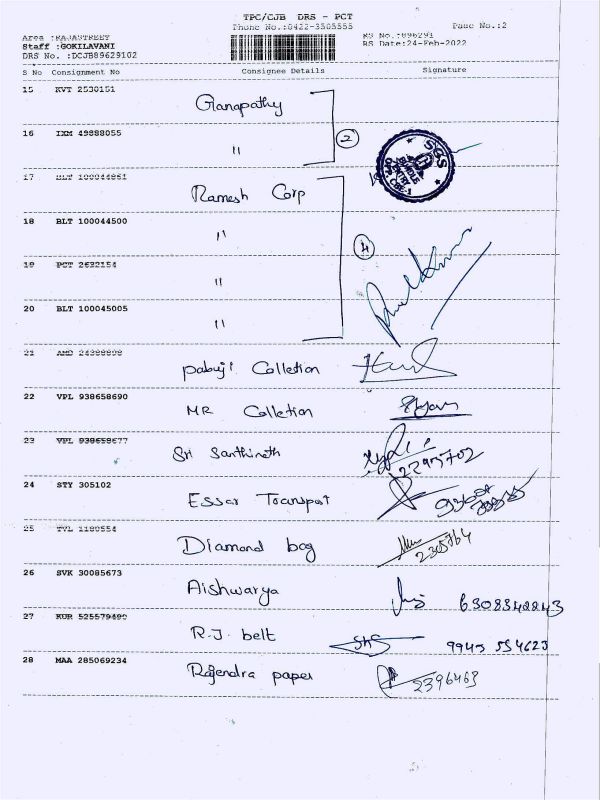 TPC/CJB DRS - PCT
Phone No.:0422-3305555
Page No.:2
Area :RAJASTREET
RS No.:896291
Staff :GOKILAVANI
RS Date:24-Feb-2022
DRS No. :DCJB89629102
S No Consignment No Consignee Details Signature
15 KVT 2530151 Ganapathy
16 IXM 49888055 "
2
SGS
17 Ramesh Corp
18 BLT 100044500 "
4
19 PCT "
20 BLT 100045005 "
21 AMD pabuji Colletion
22 VPL 938658690 MR Colletion
23 VPL 938658677 Sri Santhinath
24 STY 305102 Essar Transport
25 Diamond bag
2305764
26 SVK 30085673 Aishwarya
27 R.J. belt SHS
28 MAA 285069234 Rajendra paper 2396463